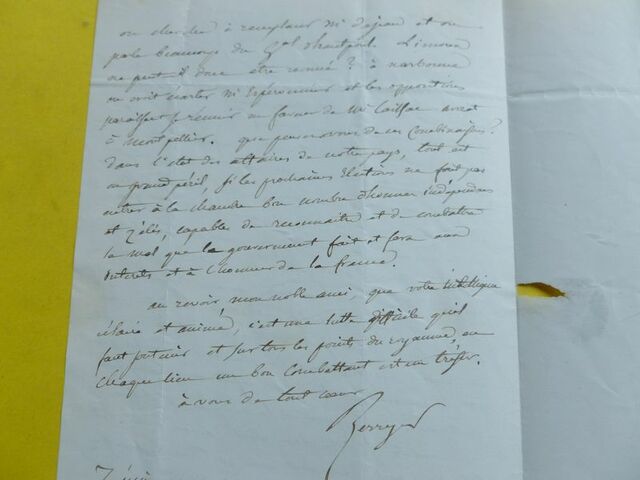 on cherche à remplacer Mr Dejean et on
parle beaucoup du Gal d'hautpoul. Limoux
ne peut il donc être remué ? à narbonne
on croit écarter Mr Espéronnier et les oppositions
paraissent se réunir en faveur de Mr Caissac avocat
à Montpellier. que pensez vous de ces Combinaisons ?
Dans l'état des affaires de notre pays, tout est
en grand péril, si les prochaines Elections ne font pas
entrer à la chambre bon nombre d'hommes indépendans
et zélés, capable de reconnaître et de combattre
le mal que le gouvernement fait et fera aux
intérêts et à l'honneur de la france.
au revoir, mon noble ami, que votre
éclaire et anime, c'est une lutte difficile qu'il
faut soutenir et sur tous les points du royaume, en
chaque lieu un bon Combattant est un trésor.
à vous de tout cœur
Berryer